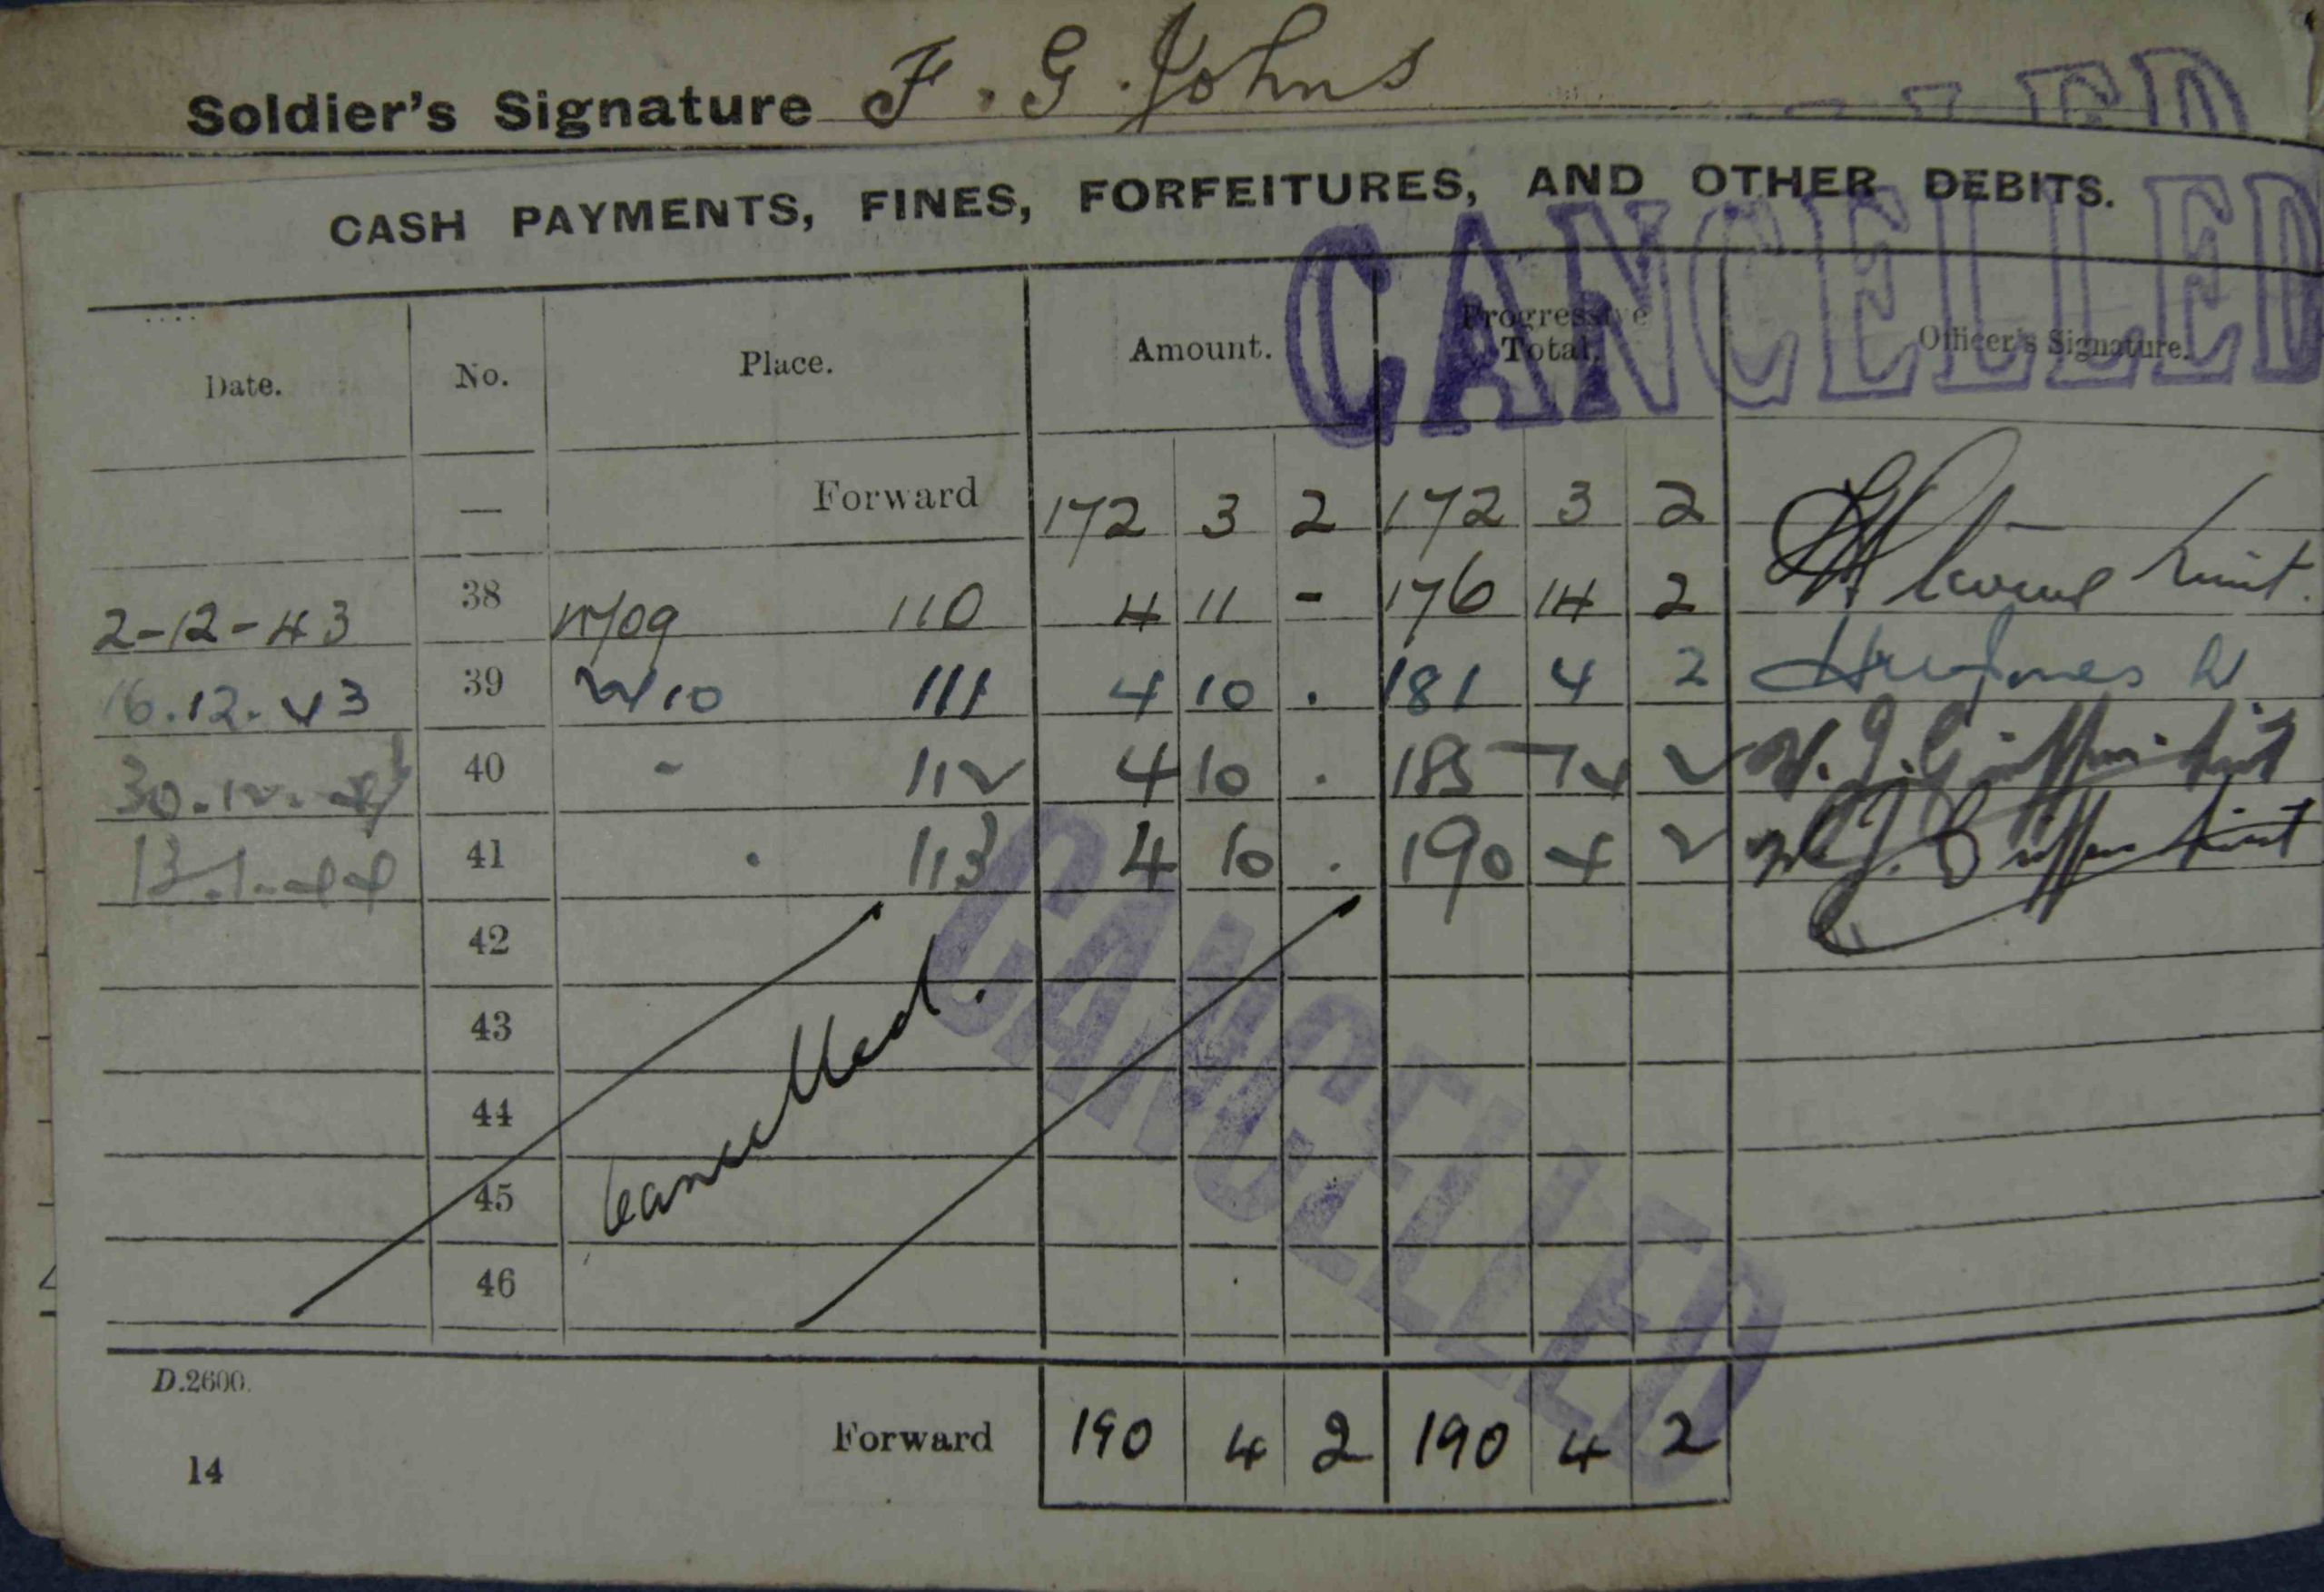 Soldier's Signature F. G. Johns
CASH PAYMENTS, FINES, FORFEITURES, AND OTHER DEBITS.
CANCELLED
Date. No. Place. Amount. Progressive Total. Officer's Signature.
— Forward 172 3 2 172 3 2
2-12-43 38 110 4 11 - 176 14 2
16.12.43 39 111 4 10 . 181 4 2
30.12.43 40 - 112 4 10 . 185 14 2
13.1.44 41 . 113 4 10 . 190 4 2
42
43
44
45
46
Cancelled.
CANCELLED
D.2600.
Forward 190 4 2 190 4 2
14